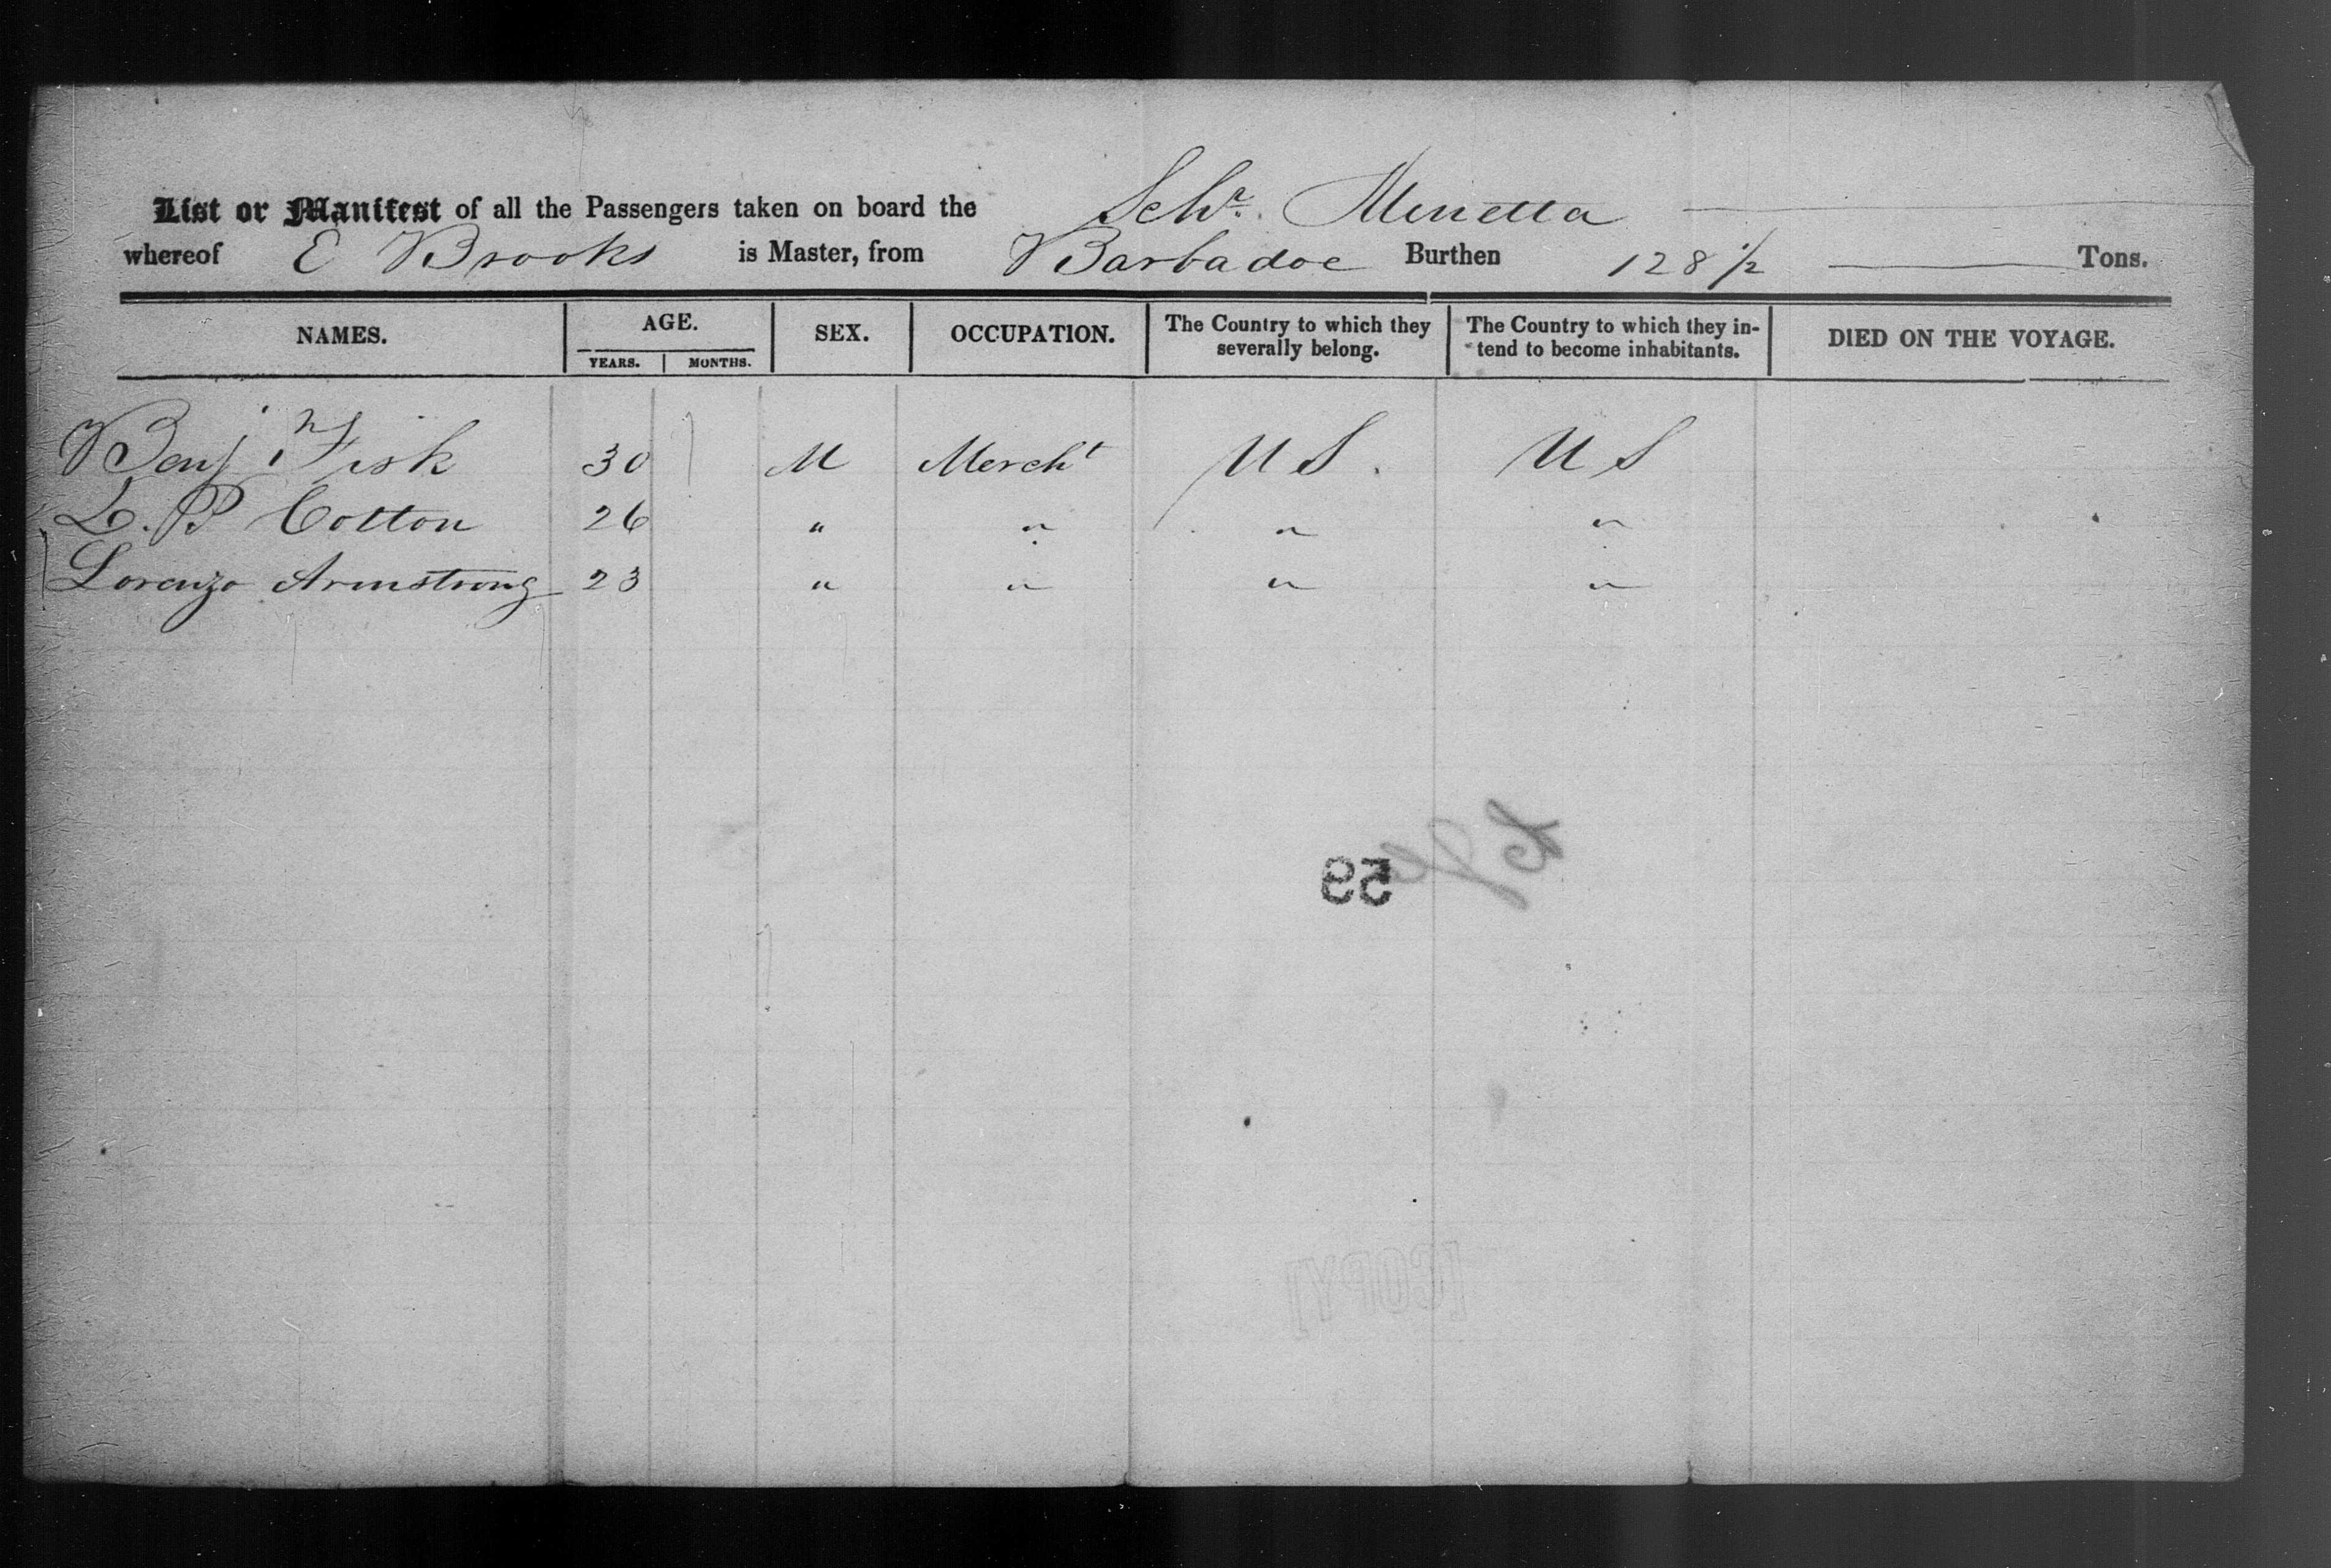 List or Manifest of all the Passengers taken on board the Schr. Minetta
whereof E Brooks is Master, from Barbadoe Burthen 128 1/2 Tons.
NAMES. AGE. SEX. OCCUPATION. The Country to which they severally belong. The Country to which they intend to become inhabitants. DIED ON THE VOYAGE.
YEARS. MONTHS.
Benjn Fisk 30 M Mercht U S. U S
L. P Cotton 26 " " " "
Lorenzo Armstrong 23 " " " "
59
[COPY]